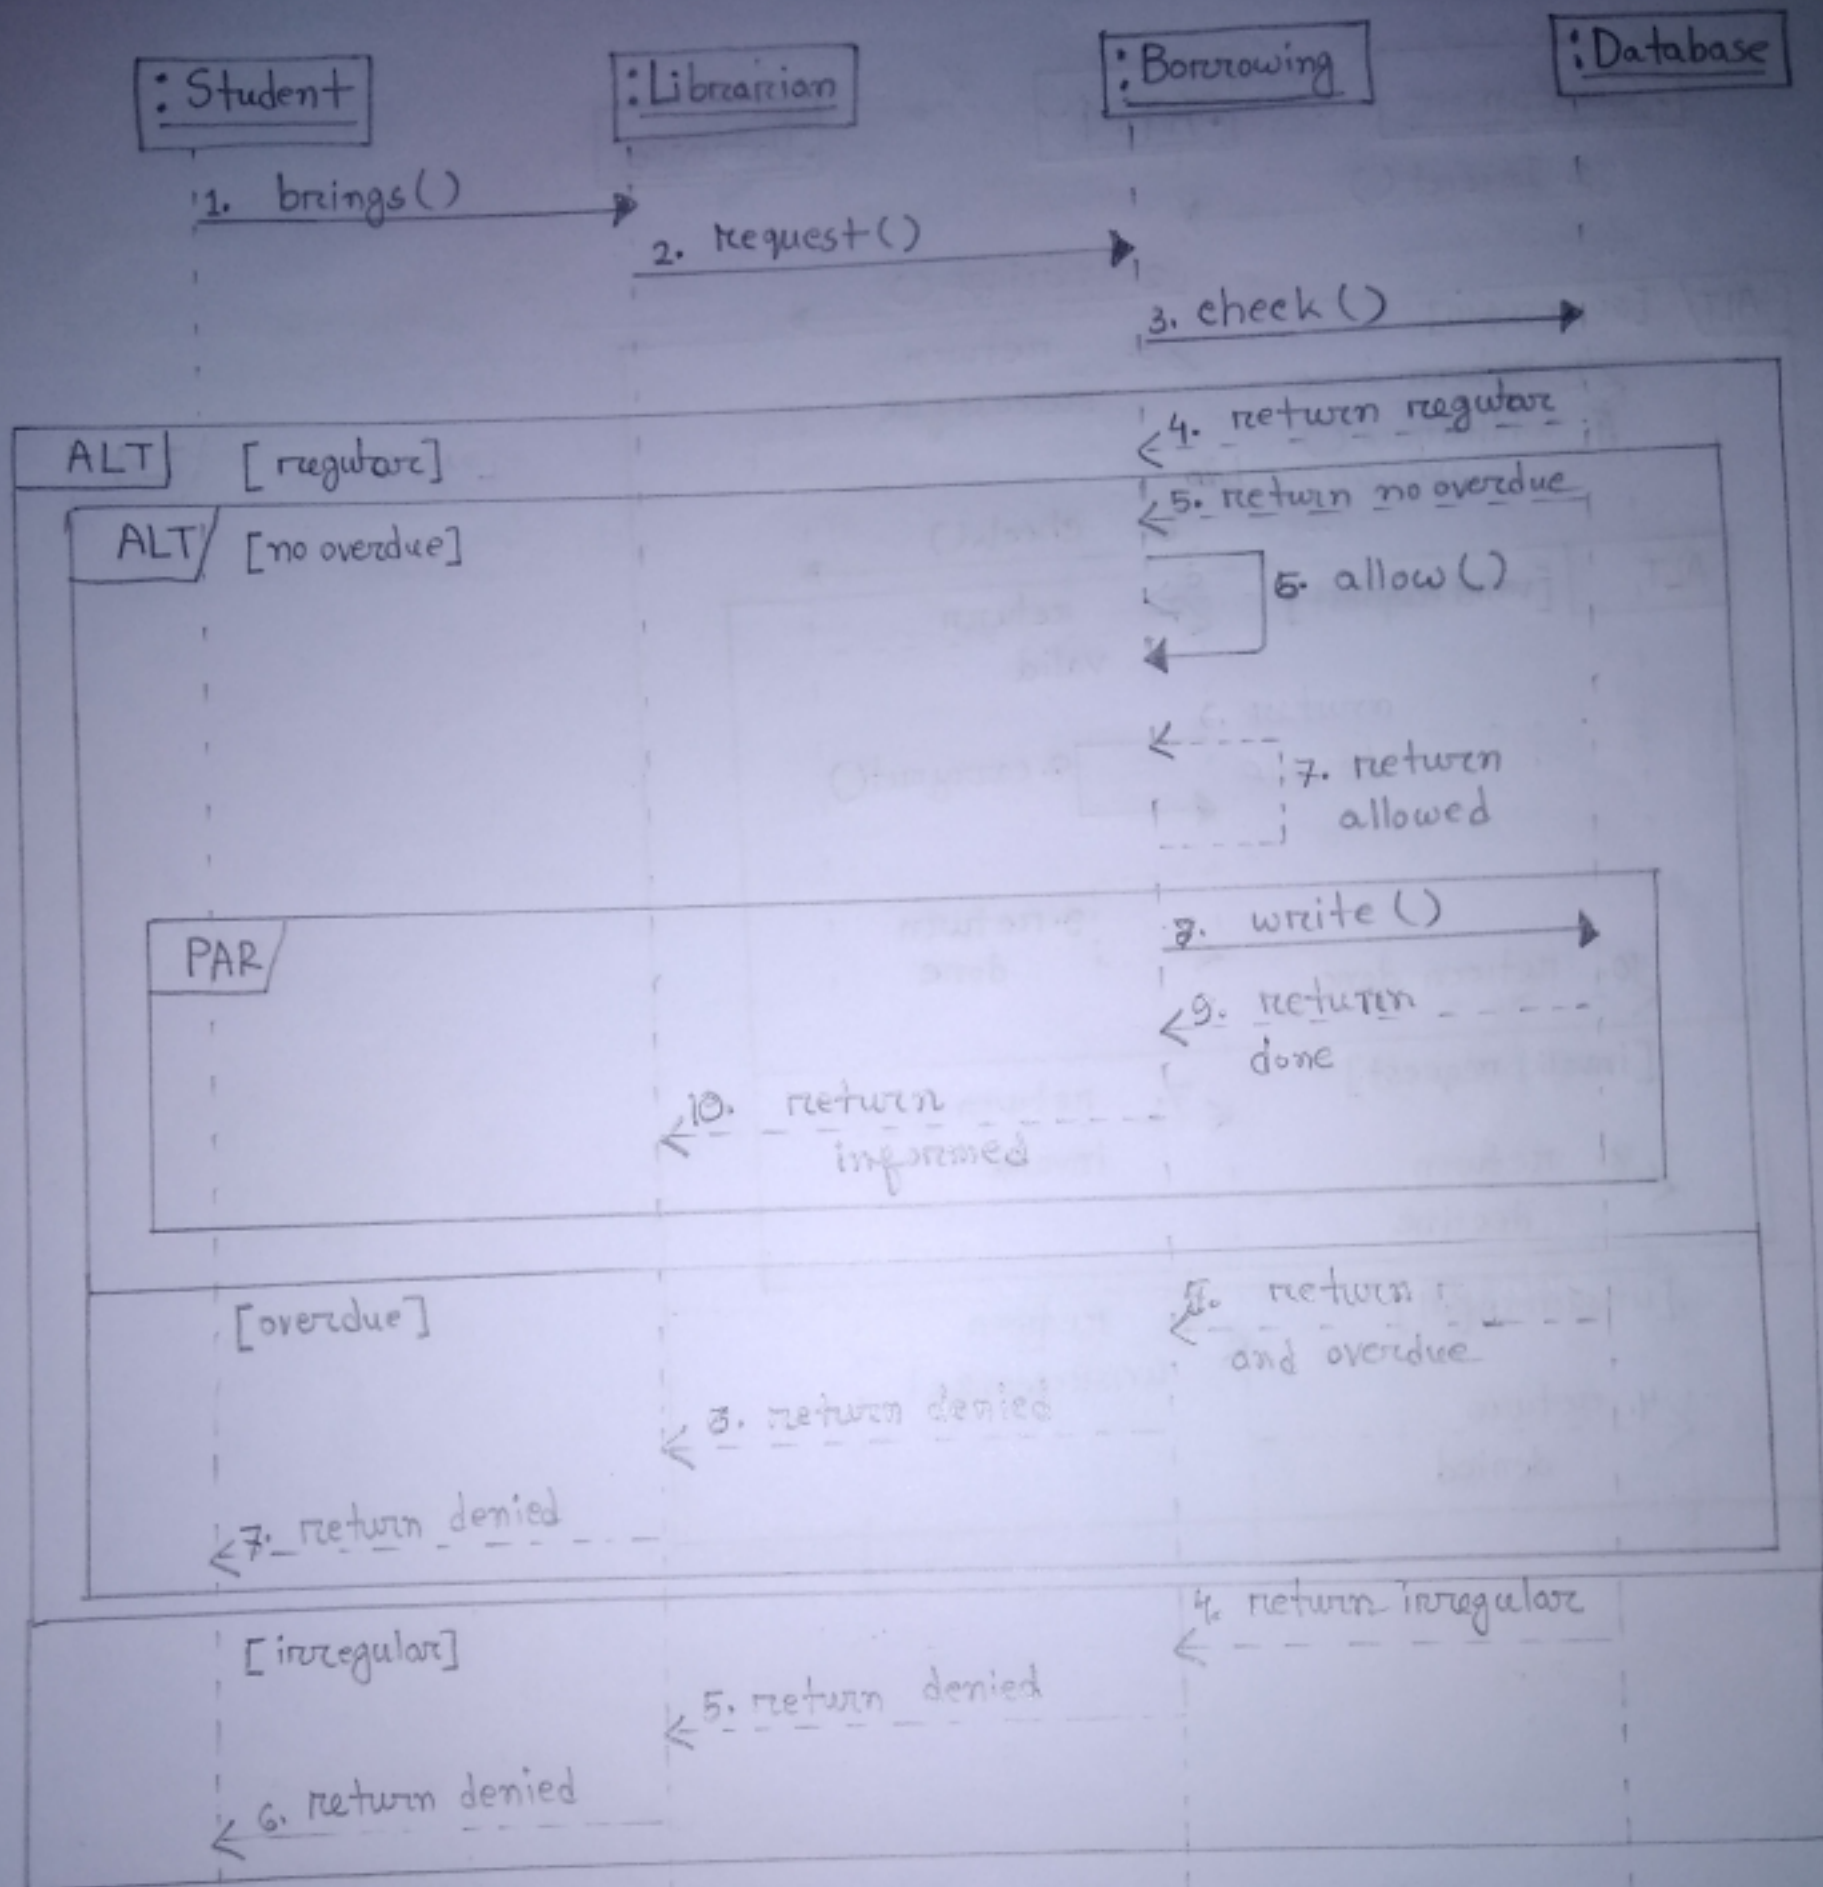 :Student
:Librarian
:Borrowing
:Database
1. brings()
2. request()
3. check()
4. return regular
ALT [regular]
5. return no overdue
ALT [no overdue]
6. allow()
7. return
allowed
PAR
8. write()
9. return
done
10. return
informed
[overdue]
5. return
and overdue
6. return denied
7. return denied
4. return irregular
[irregular]
5. return denied
6. return denied